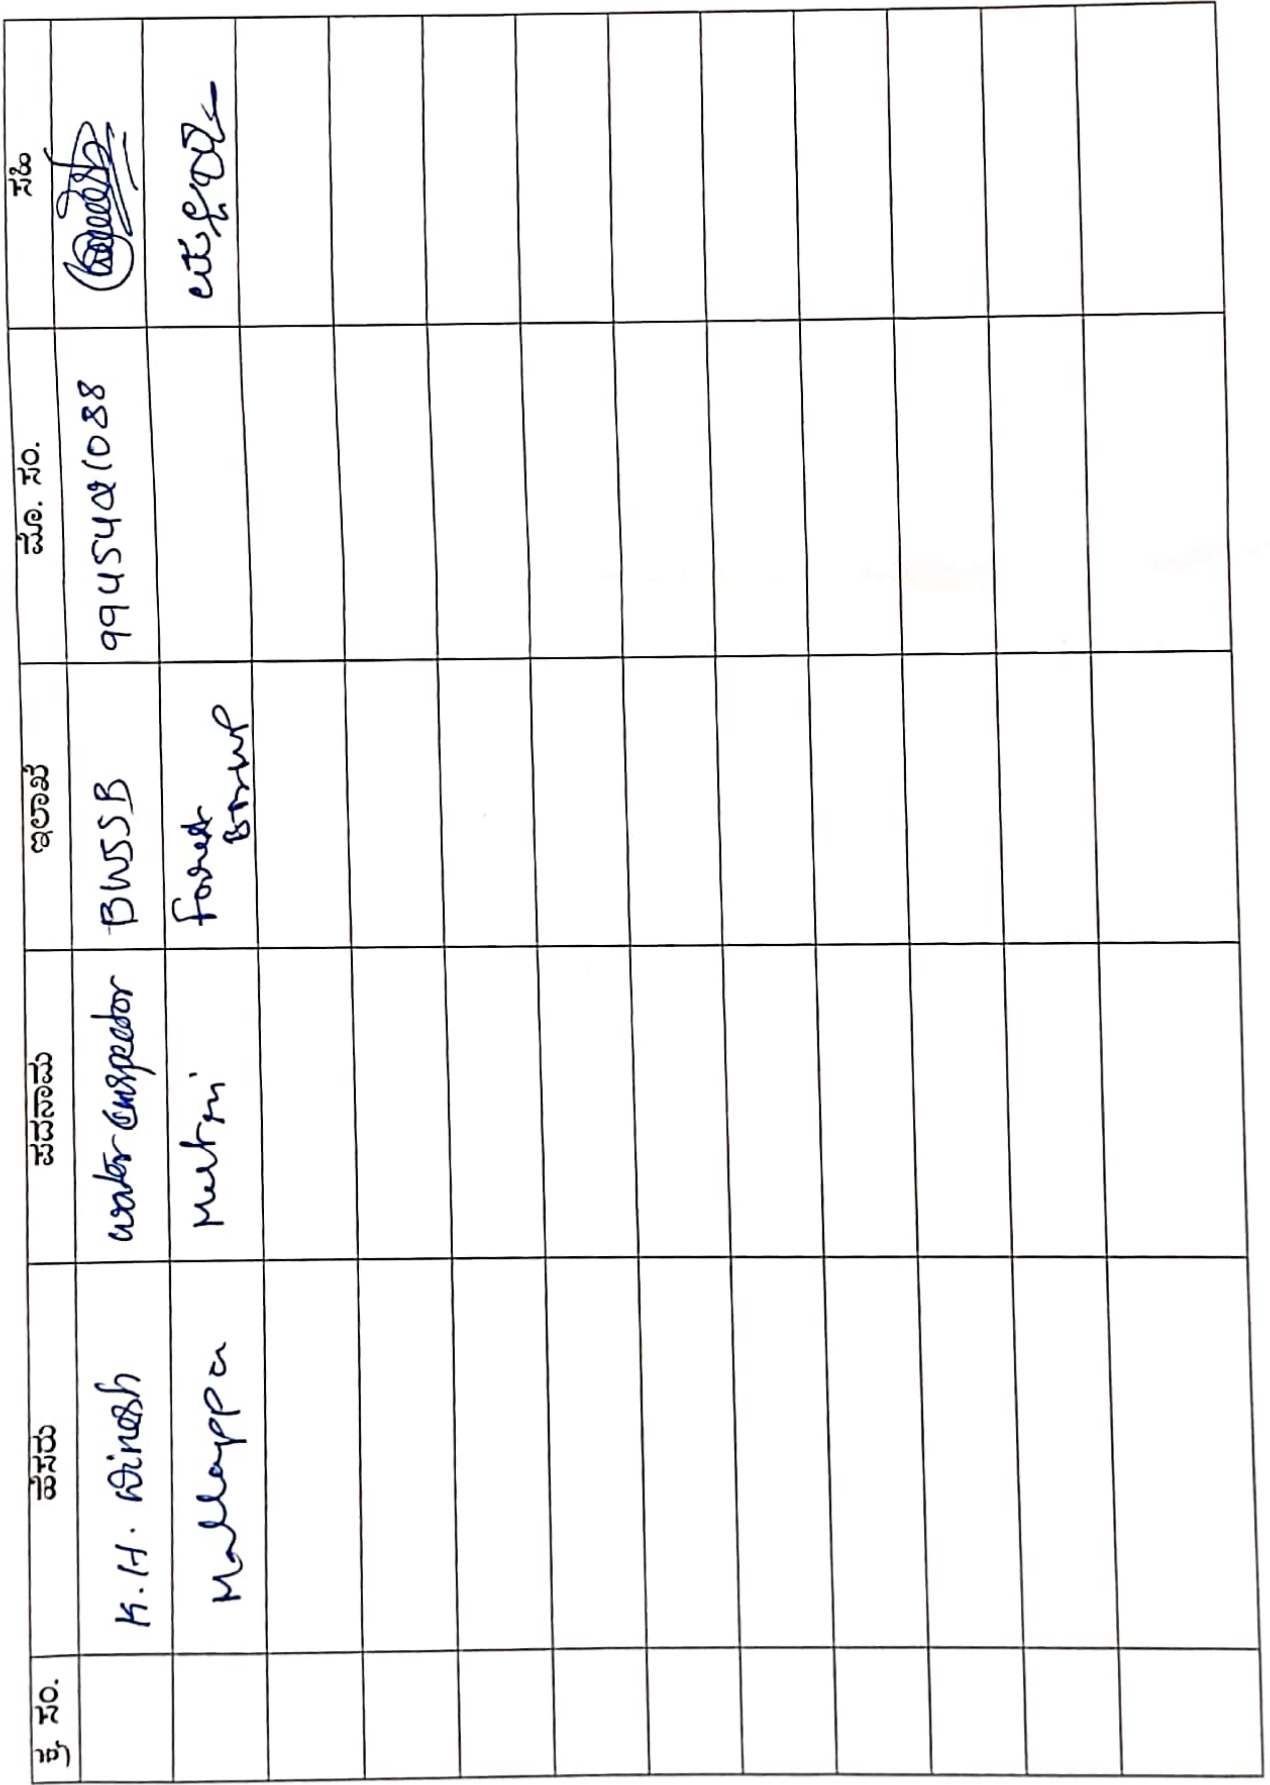 ಕ್ರ ಸಂ. ಹೆಸರು ಪದನಾಮ ಇಲಾಖೆ ಮೊ. ಸಂ. ಸಹಿ
K.H. Dinesh water inspector BWSSB 9945421088
Mallappa Mestri Forest